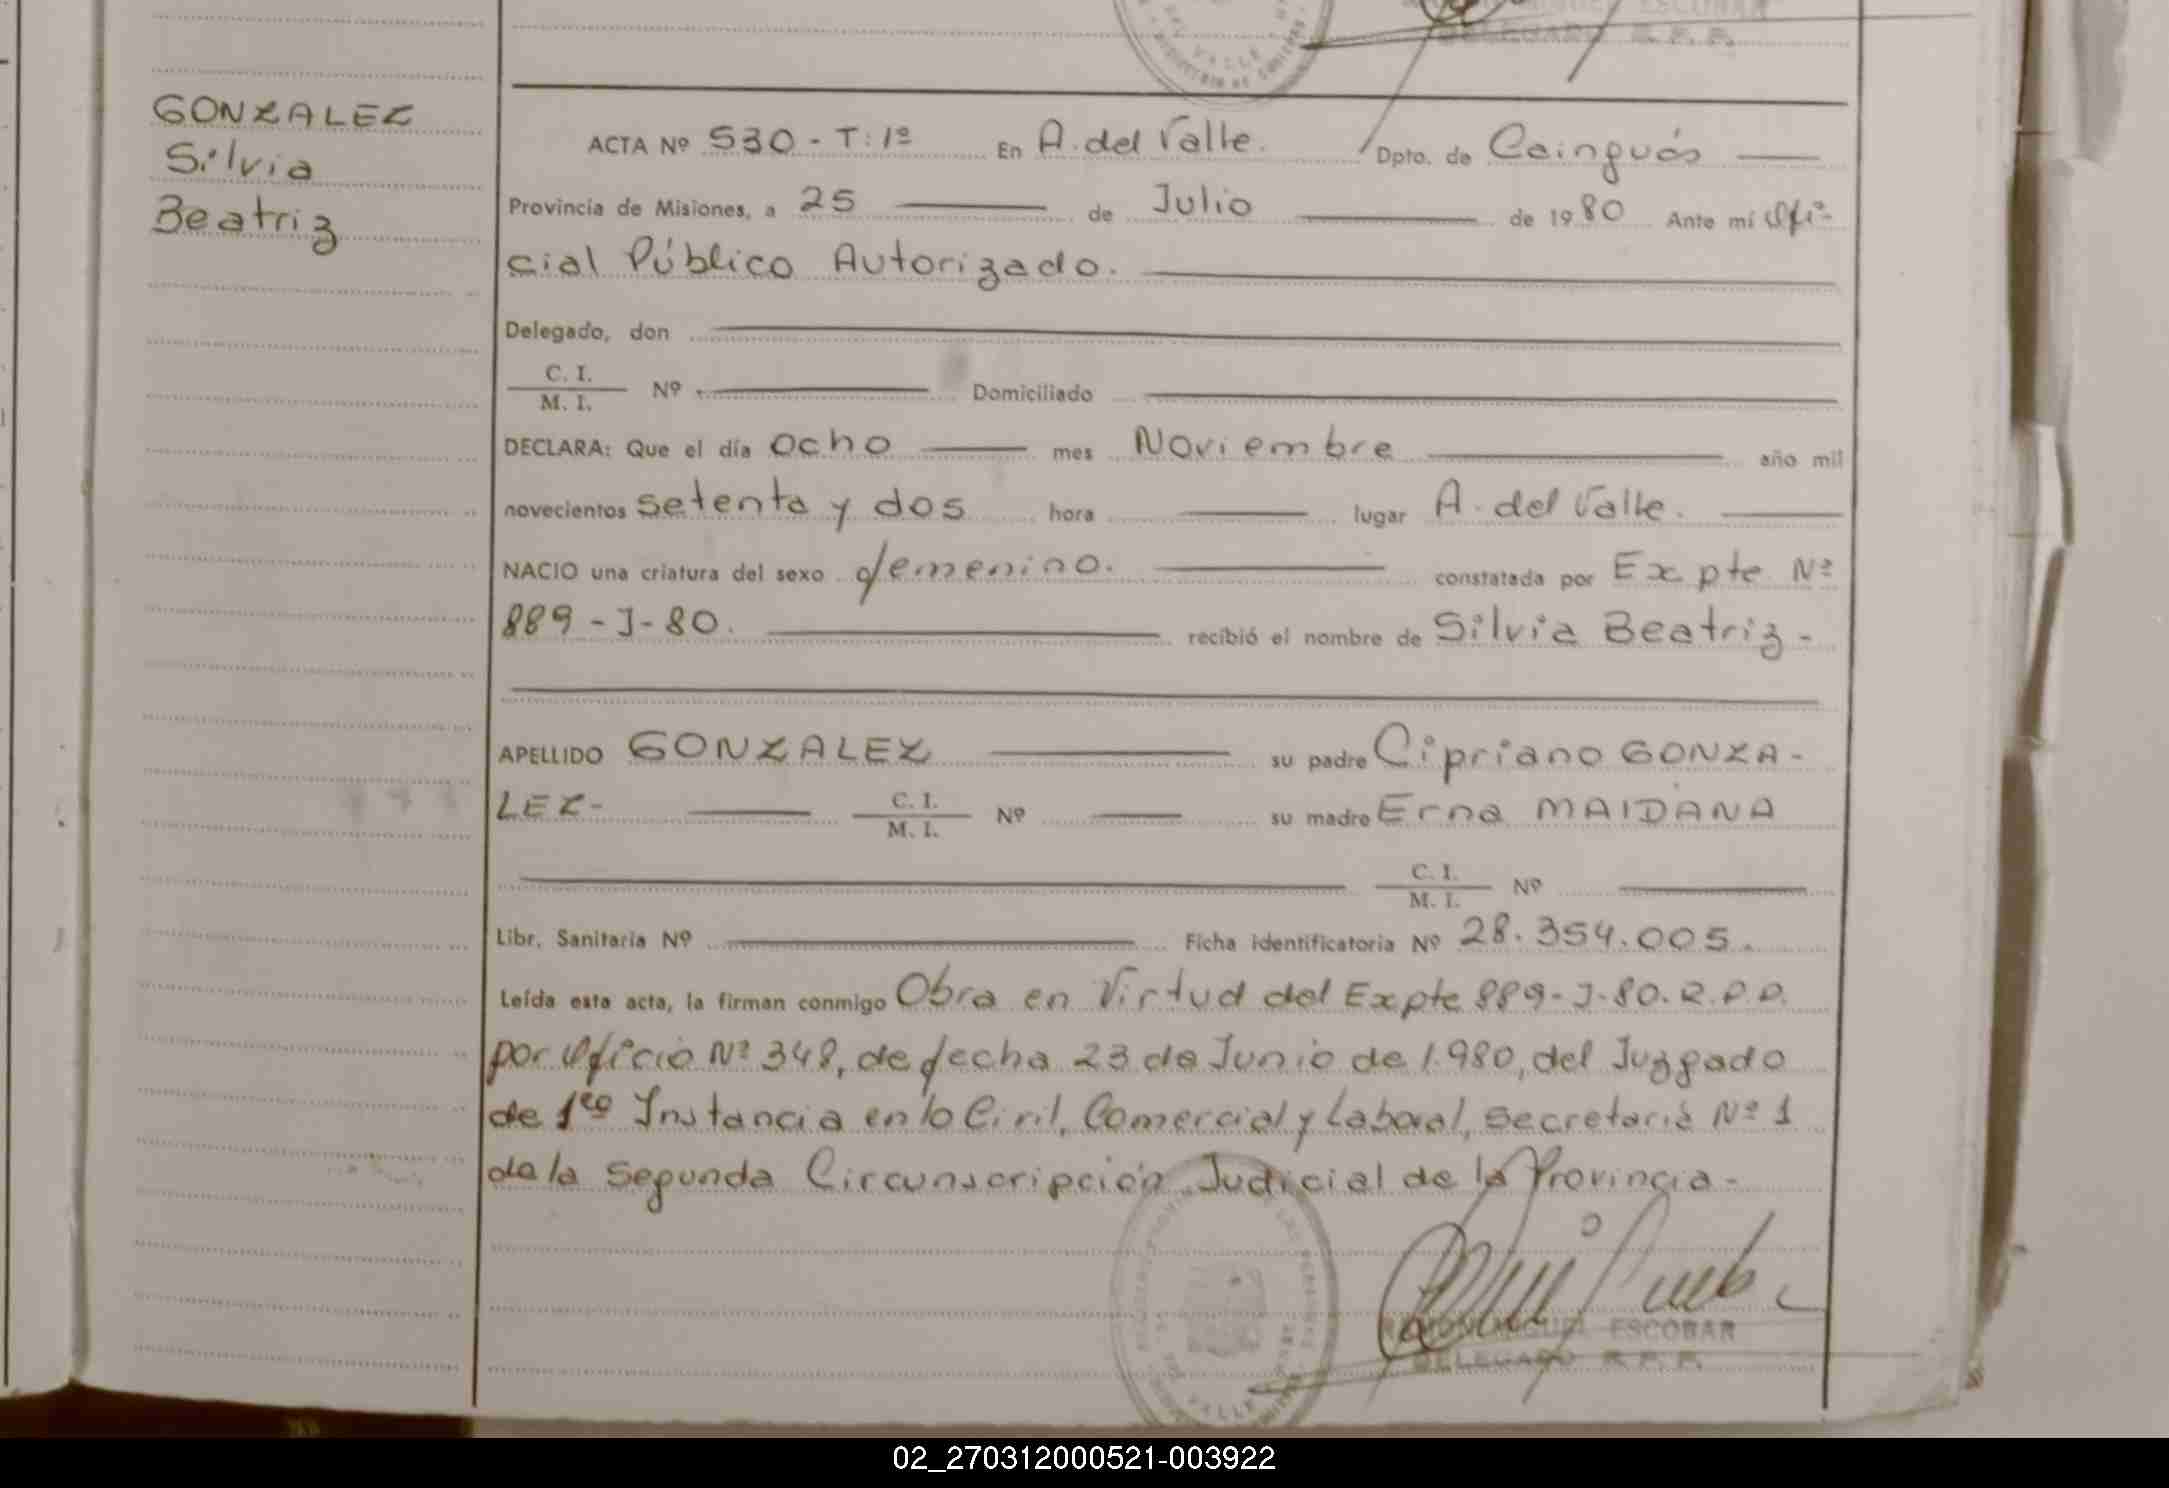 ESCOBAR
DELEGADO R. P. P.
GONZALEZ
Silvia
Beatriz
ACTA Nº 530 - T: 1º En A. del Valle. Dpto. de Cainguás
Provincia de Misiones, a 25 de Julio de 1980 Ante mí Ofi-
cial Público Autorizado.
Delegado, don
C. I.
M. I. Nº Domiciliado
DECLARA: Que el día ocho mes Noviembre año mil
novecientos setenta y dos hora lugar A. del Valle.
NACIO una criatura del sexo femenino. constatada por Expte Nº
889 - J - 80. recibió el nombre de Silvia Beatriz -
APELLIDO GONZALEZ su padre Cipriano GONZA-
LEZ- C. I. M. I. Nº su madre Erna MAIDANA
C. I. M. I. Nº
Libr. Sanitaria Nº Ficha identificatoria Nº 28.354.005.
Leída esta acta, la firman conmigo Obra en Virtud del Expte 889-J-80. R.P.P.
por Oficio Nº 348, de fecha 23 de Junio de 1.980, del Juzgado
de 1ra Instancia en lo Civil, Comercial y Laboral, Secretaría Nº 1
de la Segunda Circunscripción Judicial de la Provincia-
RAMON MIGUEL ESCOBAR
DELEGADO R. P. P.
02_270312000521-003922